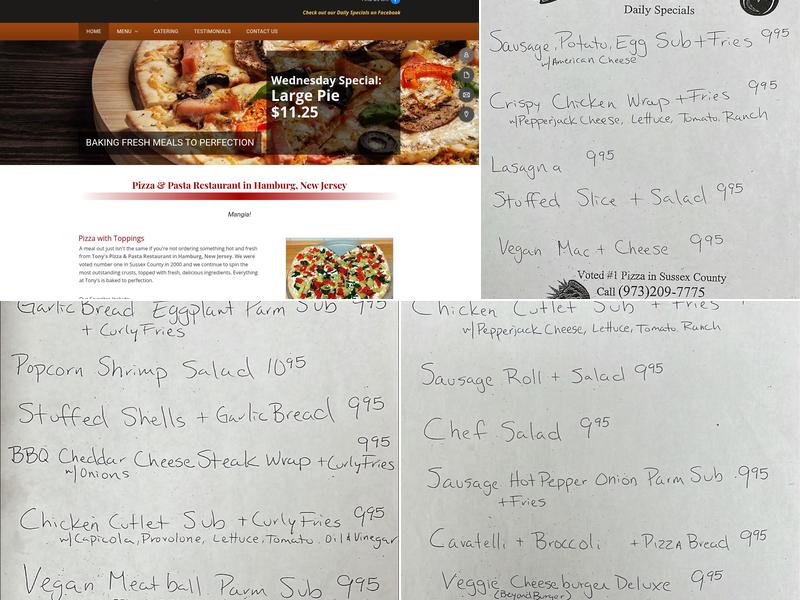 Check out our Daily Specials on Facebook
HOME MENU CATERING TESTIMONIALS CONTACT US
Wednesday Special:
Large Pie
$11.25
BAKING FRESH MEALS TO PERFECTION
Pizza & Pasta Restaurant in Hamburg, New Jersey
Mangia!
Pizza with Toppings
A meal out just isn't the same if you're not ordering something hot and fresh
from Tony's Pizza & Pasta Restaurant in Hamburg, New Jersey. We were
voted number one in Sussex County in 2000 and we continue to spin the
most outstanding crusts, topped with fresh, delicious ingredients. Everything
at Tony's is baked to perfection.
Daily Specials
Sausage, Potato, Egg Sub + Fries 995
w/American Cheese
Crispy Chicken Wrap + Fries 995
w/Pepperjack Cheese, Lettuce, Tomato. Ranch
Lasagna 995
Stuffed Slice + Salad 995
Vegan Mac + Cheese 995
Voted #1 Pizza in Sussex County
Call (973)209-7775
Garlic Bread Eggplant Parm Sub 995
+ Curly Fries
Popcorn Shrimp Salad 1095
Stuffed Shells + Garlic Bread 995
BBQ Cheddar Cheese Steak Wrap + Curly Fries 995
w/Onions
Chicken Cutlet Sub + Curly Fries 995
w/Capicola, Provolone, Lettuce, Tomato. Oil & Vinegar
Vegan Meatball Parm Sub 995
Chicken Cutlet Sub + Fries
w/Pepperjack Cheese, Lettuce, Tomato. Ranch
Sausage Roll + Salad 995
Chef Salad 995
Sausage Hot Pepper Onion Parm Sub 995
+ Fries
Cavatelli + Broccoli + Pizza Bread 995
Veggie Cheeseburger Deluxe 995
(Beyond Burger)